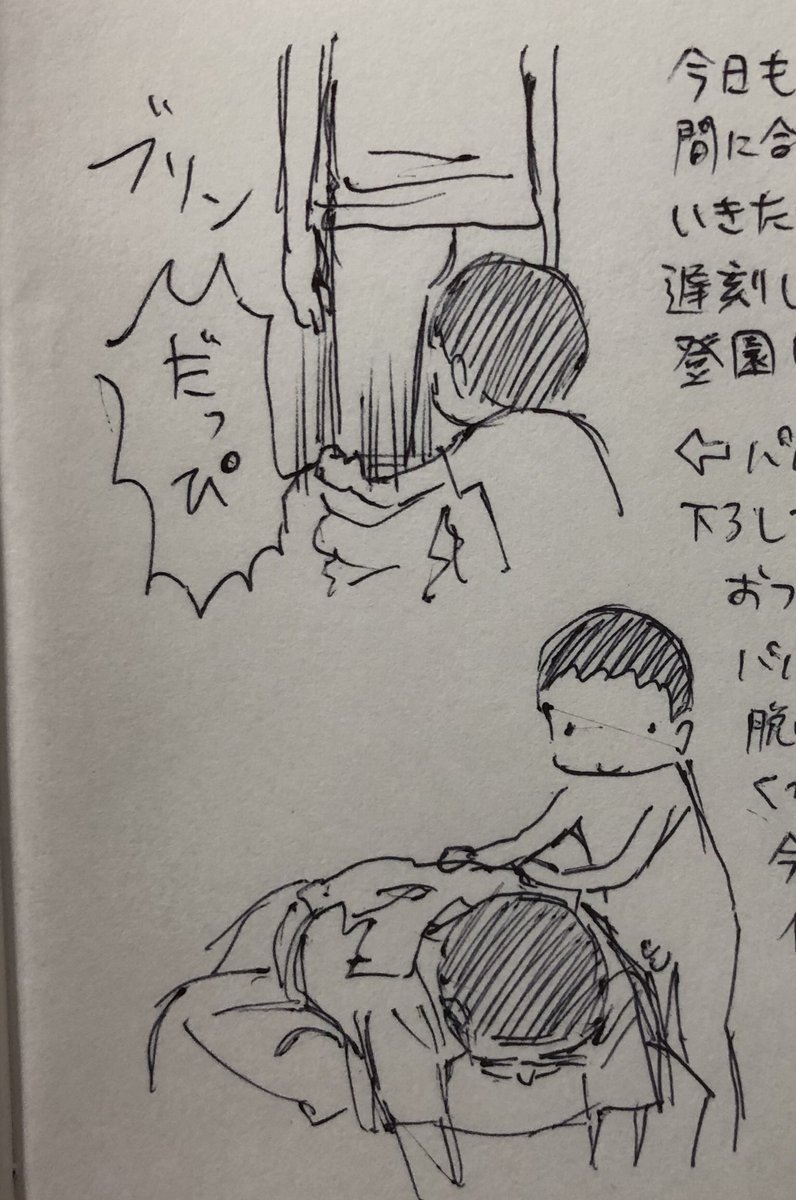 ブリン
だっぴ
今日も
間に合
いきた
遅刻し
登園
⇦パ
下ろして
おつ
パ
脱
く
今